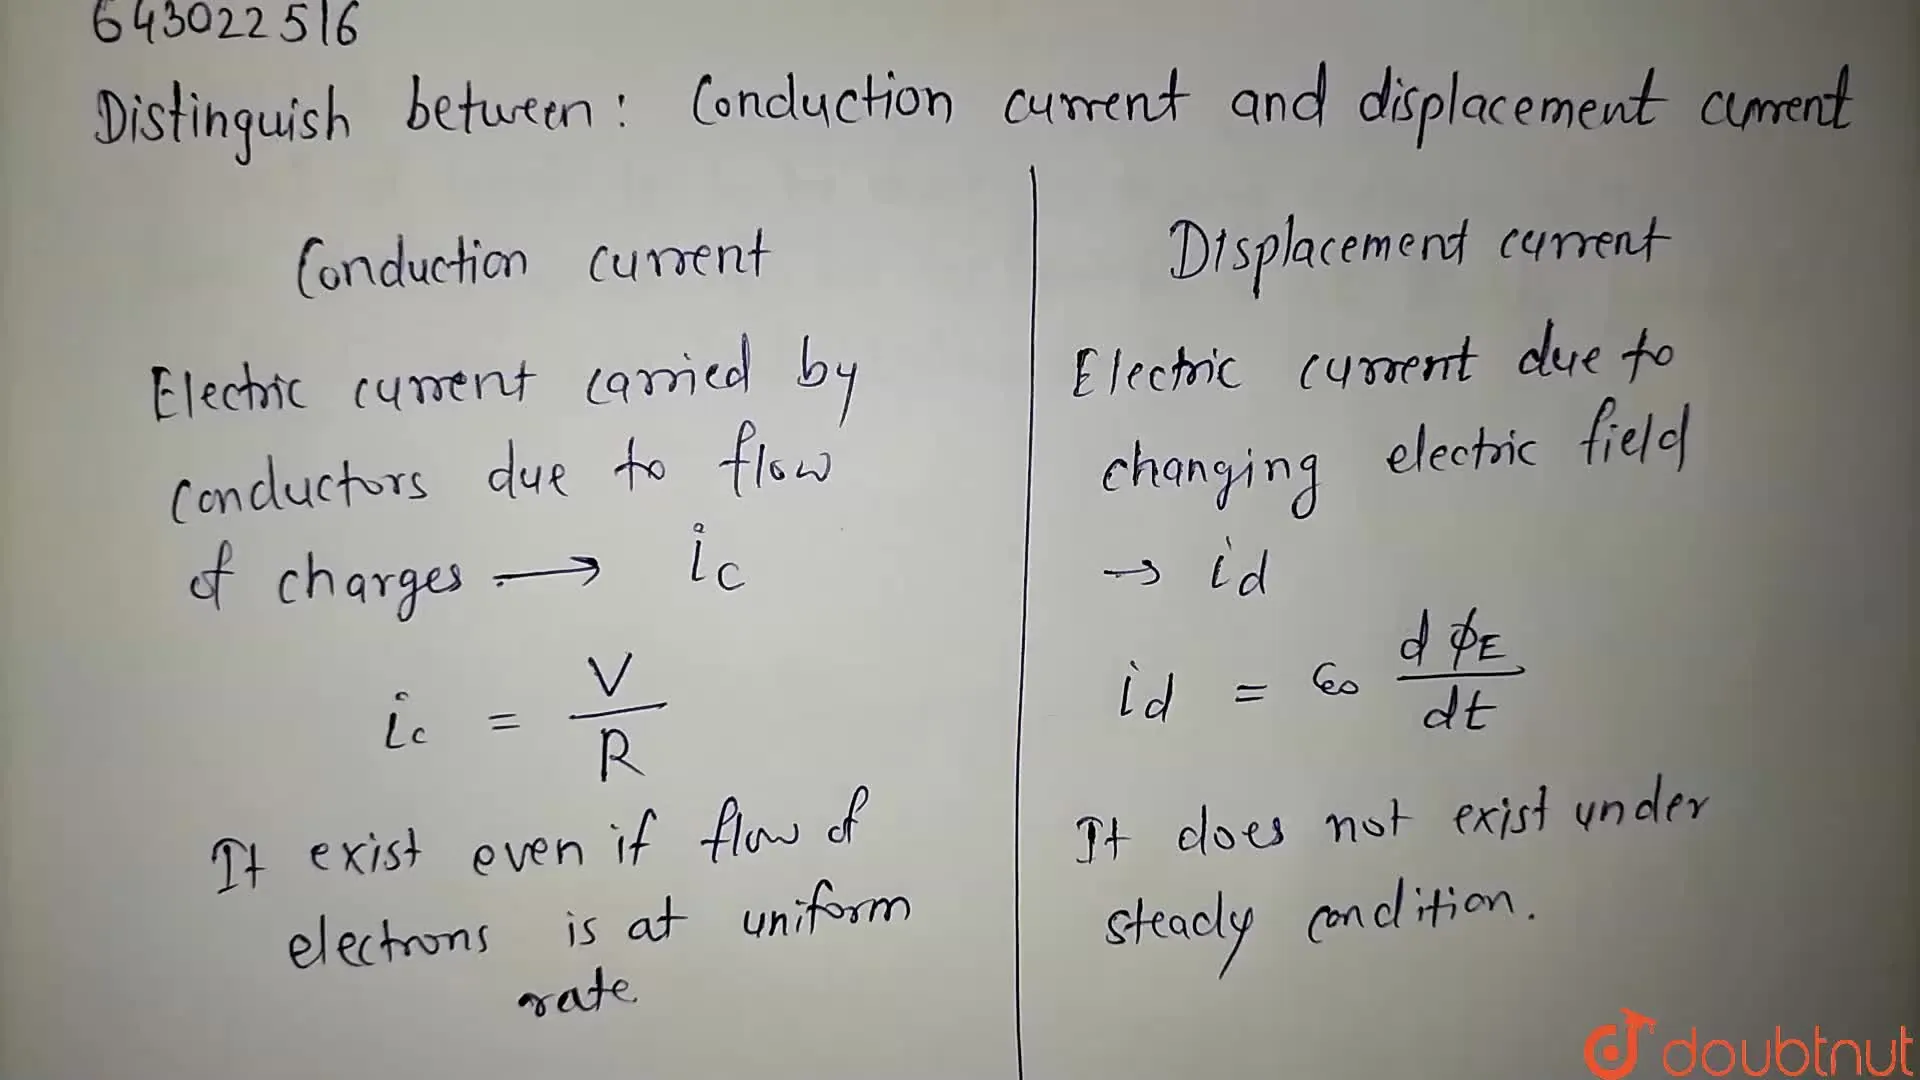 643022516
Distinguish between: Conduction current and displacement current
Conduction current
Electric current carried by
conductors due to flow
of charges → ic
ic = V/R
It exist even if flow of
electrons is at uniform
rate
Displacement current
Electric current due to
changing electric field
→ id
id = ε₀ dφE/dt
It does not exist under
steady condition.
doubtnut